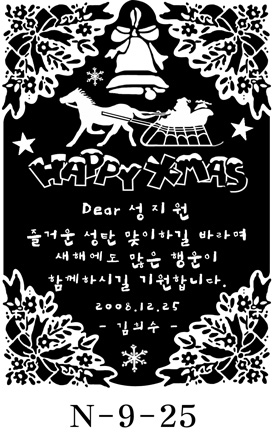 HAPPY XMAS
Dear 성지원
즐거운 성탄 맞이하길 바라며
새해에도 많은 행운이
함께하시길 기원합니다.
2008.12.25
- 김희수 -
N-9-25